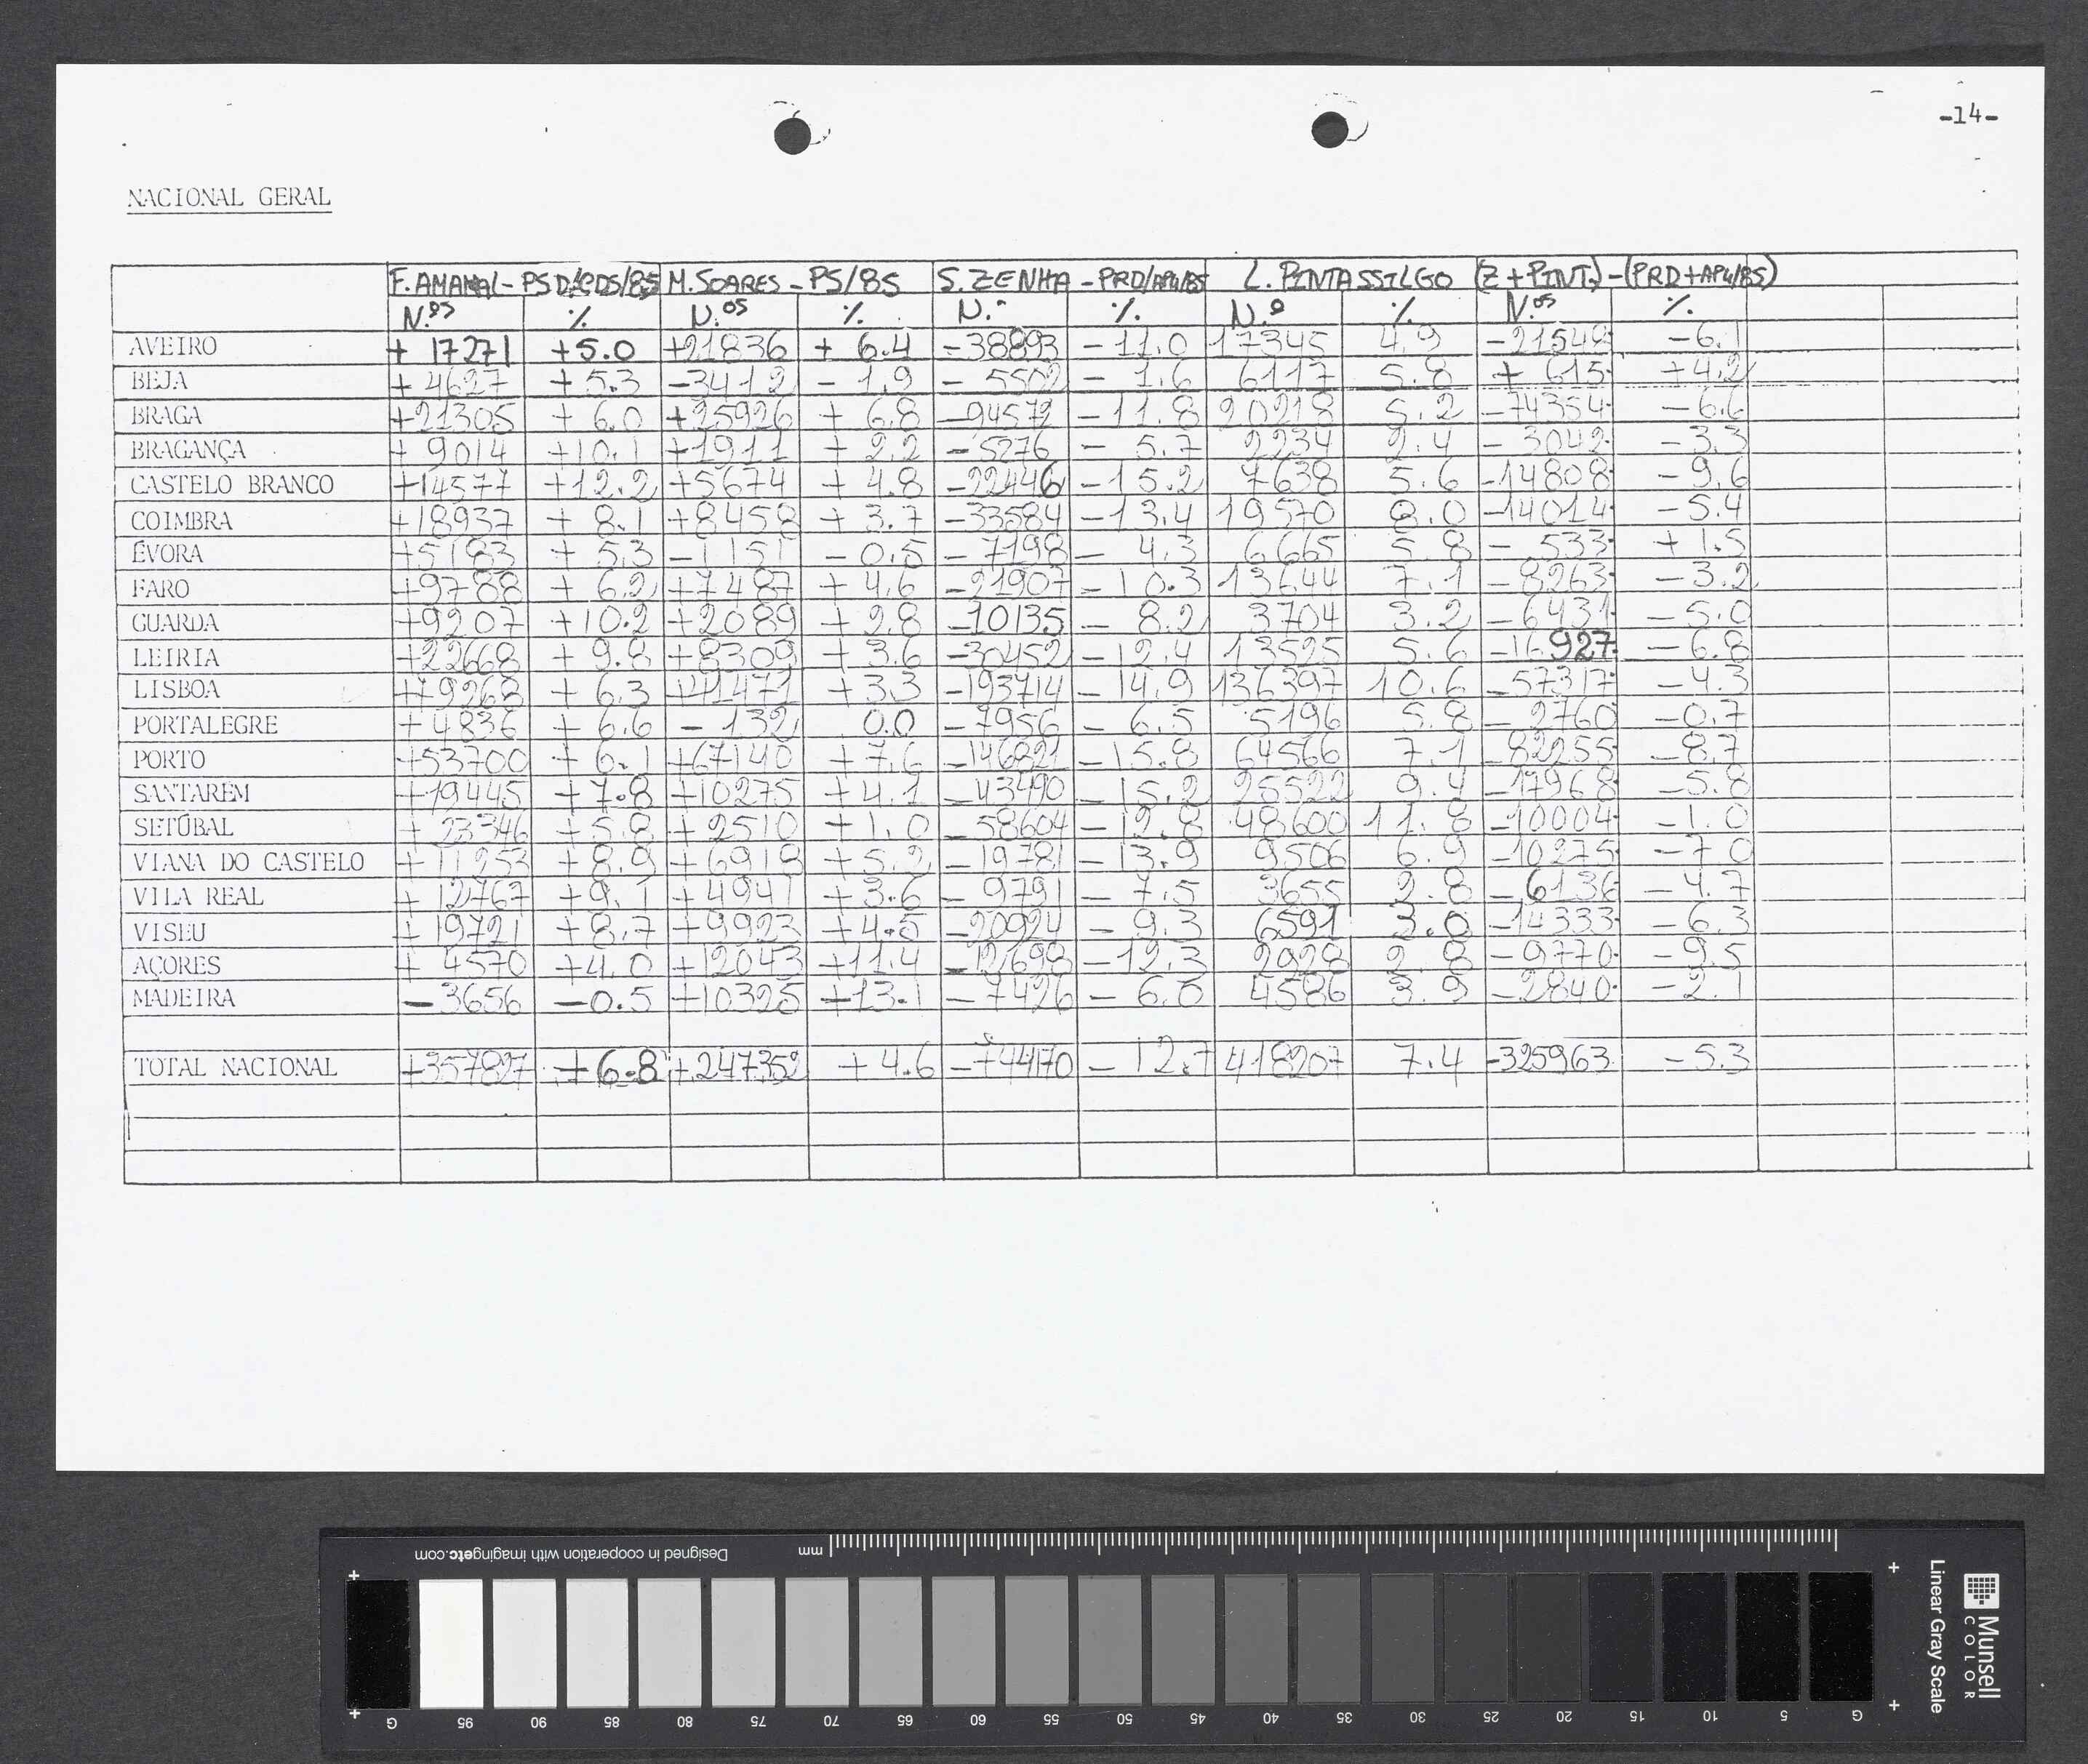 -14-
NACIONAL GERAL
F. AMARAL - PSD/CDS/85 M. SOARES - PS/85 S. ZENHA - PRD/APU/85 L. PINTASSILGO (Z + PINT.) - (PRD+APU/85)
N.os % N.os % N.º % N.º % N.os %
AVEIRO + 17271 +5.0 +21836 + 6.4 -38893 - 11.0 17345 4.9 -21548 -6.1
BEJA + 4627 +5.3 -3412 - 1.9 - 5502 - 1.6 6117 5.8 + 615 +4.2
BRAGA +21305 + 6.0 +25926 + 6.8 -94572 -11.8 20218 5.2 -74354 -6.6
BRAGANÇA + 9014 +10.1 +1911 + 2.2 -5276 - 5.7 2234 2.4 - 3042 -3.3
CASTELO BRANCO +14577 +12.2 +5674 + 4.8 -22446 -15.2 7638 5.6 -14808 -9.6
COIMBRA +18937 + 8.1 +8458 + 3.7 -33584 -13.4 19570 8.0 -14014 -5.4
ÉVORA +5183 + 5.3 -1151 - 0.5 - 7198 - 4.3 6665 5.8 - 533 + 1.5
FARO +9788 + 6.2 +7487 + 4.6 -21907 -10.3 13644 7.1 -8263 -3.2
GUARDA +9207 +10.2 +2089 + 2.8 -10135 - 8.2 3704 3.2 -6431 -5.0
LEIRIA +22668 + 9.8 +8309 + 3.6 -30452 -12.4 13525 5.6 -16927 -6.8
LISBOA +79268 + 6.3 +41471 +3.3 -193714 -14.9 136397 10.6 -57317 -4.3
PORTALEGRE + 4836 + 6.6 - 132 0.0 -7956 - 6.5 5196 5.8 - 2760 -0.7
PORTO +53700 + 6.1 +67140 +7.6 -146821 -15.8 64566 7.1 -82255 -8.7
SANTARÉM +19445 +7.8 +10275 +4.1 -43490 -15.2 25522 9.4 -17968 -5.8
SETÚBAL + 23346 +5.8 + 2510 +1.0 -58604 -12.8 48600 11.8 -10004 -1.0
VIANA DO CASTELO + 11253 +8.9 +6918 +5.2 -19781 -13.9 9506 6.9 -10275 -7.0
VILA REAL + 12767 +9.1 + 4941 +3.6 - 9791 - 7.5 3655 2.8 - 6136 -4.7
VISEU + 19721 +8.7 +9923 +4.5 -20924 - 9.3 6591 3.0 -14333 -6.3
AÇORES + 4570 +4.0 +12043 +11.4 -12698 -12.3 2928 2.8 -9770 -9.5
MADEIRA - 3656 -0.5 +10325 +13.1 - 7426 - 6.0 4586 3.9 -2840 -2.1
TOTAL NACIONAL +357827 +6.8 +247352 + 4.6 -744170 - 12.7 418207 7.4 -325963 -5.3
Designed in cooperation with imagingetc.com
mm
Munsell
COLOR
Linear Gray Scale
G 95 90 85 80 75 70 65 60 55 50 45 40 35 30 25 20 15 10 5 G